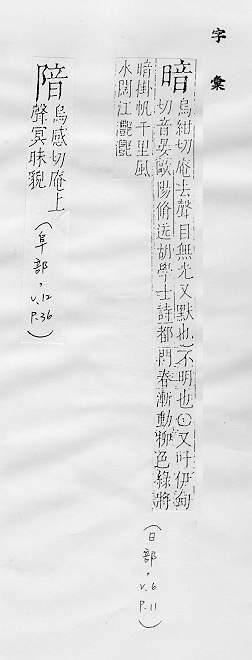 字彙
暗 烏紺切庵去聲日無光又默也)不明也○又叶伊甸
切音宴歐陽脩送胡學士詩都門春漸動柳色綠將
暗掛帆千里風
水闊江灩灩
(日部, v.6 P.11)
隌 烏感切庵上
聲冥昧貌
(阜部, v.12 P.36)